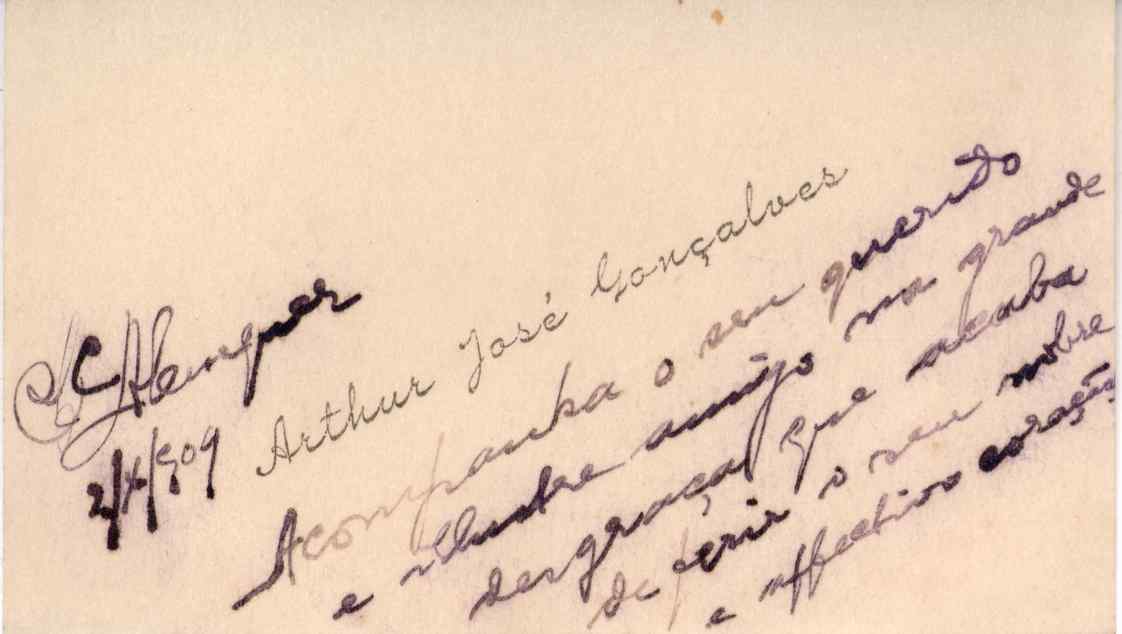 Arthur José Gonçalves
Acompanha o seu querido
e illustre amigo na grande
desgraça que acaba
de ferir o seu nobre
e affectivo coração
C Alemquer
2/4/909